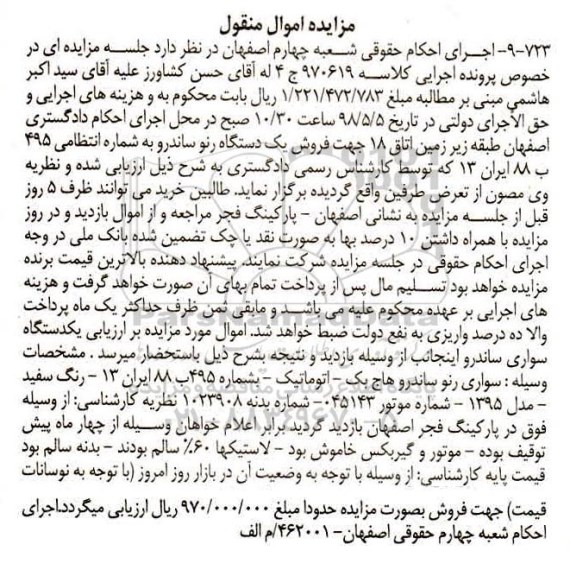 مزایده اموال منقول
۹-۷۲۳- اجرای احکام حقوقی شعبه چهارم اصفهان در نظر دارد جلسه مزایده ای در
خصوص پرونده اجرایی کلاسه ۹۷۰۶۱۹ ج ۴ له آقای حسن کشاورز علیه آقای سید اکبر
هاشمی مبنی بر مطالبه مبلغ ۱/۲۲۱/۴۷۲/۷۸۳ ریال بابت محکوم به و هزینه های اجرایی و
حق الاجرای دولتی در تاریخ ۹۸/۵/۵ ساعت ۱۰/۳۰ صبح در محل اجرای احکام دادگستری
اصفهان طبقه زیر زمین اتاق ۱۸ جهت فروش یک دستگاه رنو ساندرو به شماره انتظامی ۴۹۵
ب ۸۸ ایران ۱۳ که توسط کارشناس رسمی دادگستری به شرح ذیل ارزیابی شده و نظریه
وی مصون از تعرض طرفین واقع گردیده برگزار نماید. طالبین خرید می توانند ظرف ۵ روز
قبل از جلسه مزایده به نشانی اصفهان - پارکینگ فجر مراجعه و از اموال بازدید و در روز
مزایده با همراه داشتن ۱۰ درصد بها به صورت نقد یا چک تضمین شده بانک ملی در وجه
اجرای احکام حقوقی در جلسه مزایده شرکت نمایند. پیشنهاد دهنده بالاترین قیمت برنده
مزایده خواهد بود تسلیم مال پس از پرداخت تمام بهای آن صورت خواهد گرفت و هزینه
های اجرایی بر عهده محکوم علیه می باشد و مابقی ثمن ظرف حداکثر یک ماه پرداخت
والا ده درصد واریزی به نفع دولت ضبط خواهد شد. اموال مورد مزایده بر ارزیابی یکدستگاه
سواری ساندرو اینجانب از وسیله بازدید و نتیجه بشرح ذیل باستحضار میرسد. مشخصات
وسیله : سواری رنو ساندرو هاچ بک - اتوماتیک - شماره ۴۹۵ب ۸۸ ایران ۱۳ - رنگ سفید
- مدل ۱۳۹۵ - شماره موتور ۰۴۵۱۴۳ - شماره بدنه ۱۰۲۳۹۰۸ نظریه کارشناسی: از وسیله
فوق در پارکینگ فجر اصفهان بازدید گردید برابر اعلام خواهان وسیله از چهار ماه پیش
توقیف بوده - موتور و گیربکس خاموش بود - لاستیکها ۶۰٪ سالم بودند - بدنه سالم بود
قیمت پایه کارشناسی: از وسیله با توجه به وضعیت آن در بازار روز امروز (با توجه به نوسانات
قیمت) جهت فروش بصورت مزایده حدودا مبلغ ۹۷۰/۰۰۰/۰۰۰ ریال ارزیابی میگردد.اجرای
احکام شعبه چهارم حقوقی اصفهان- ۴۶۲۰۰۱/م الف